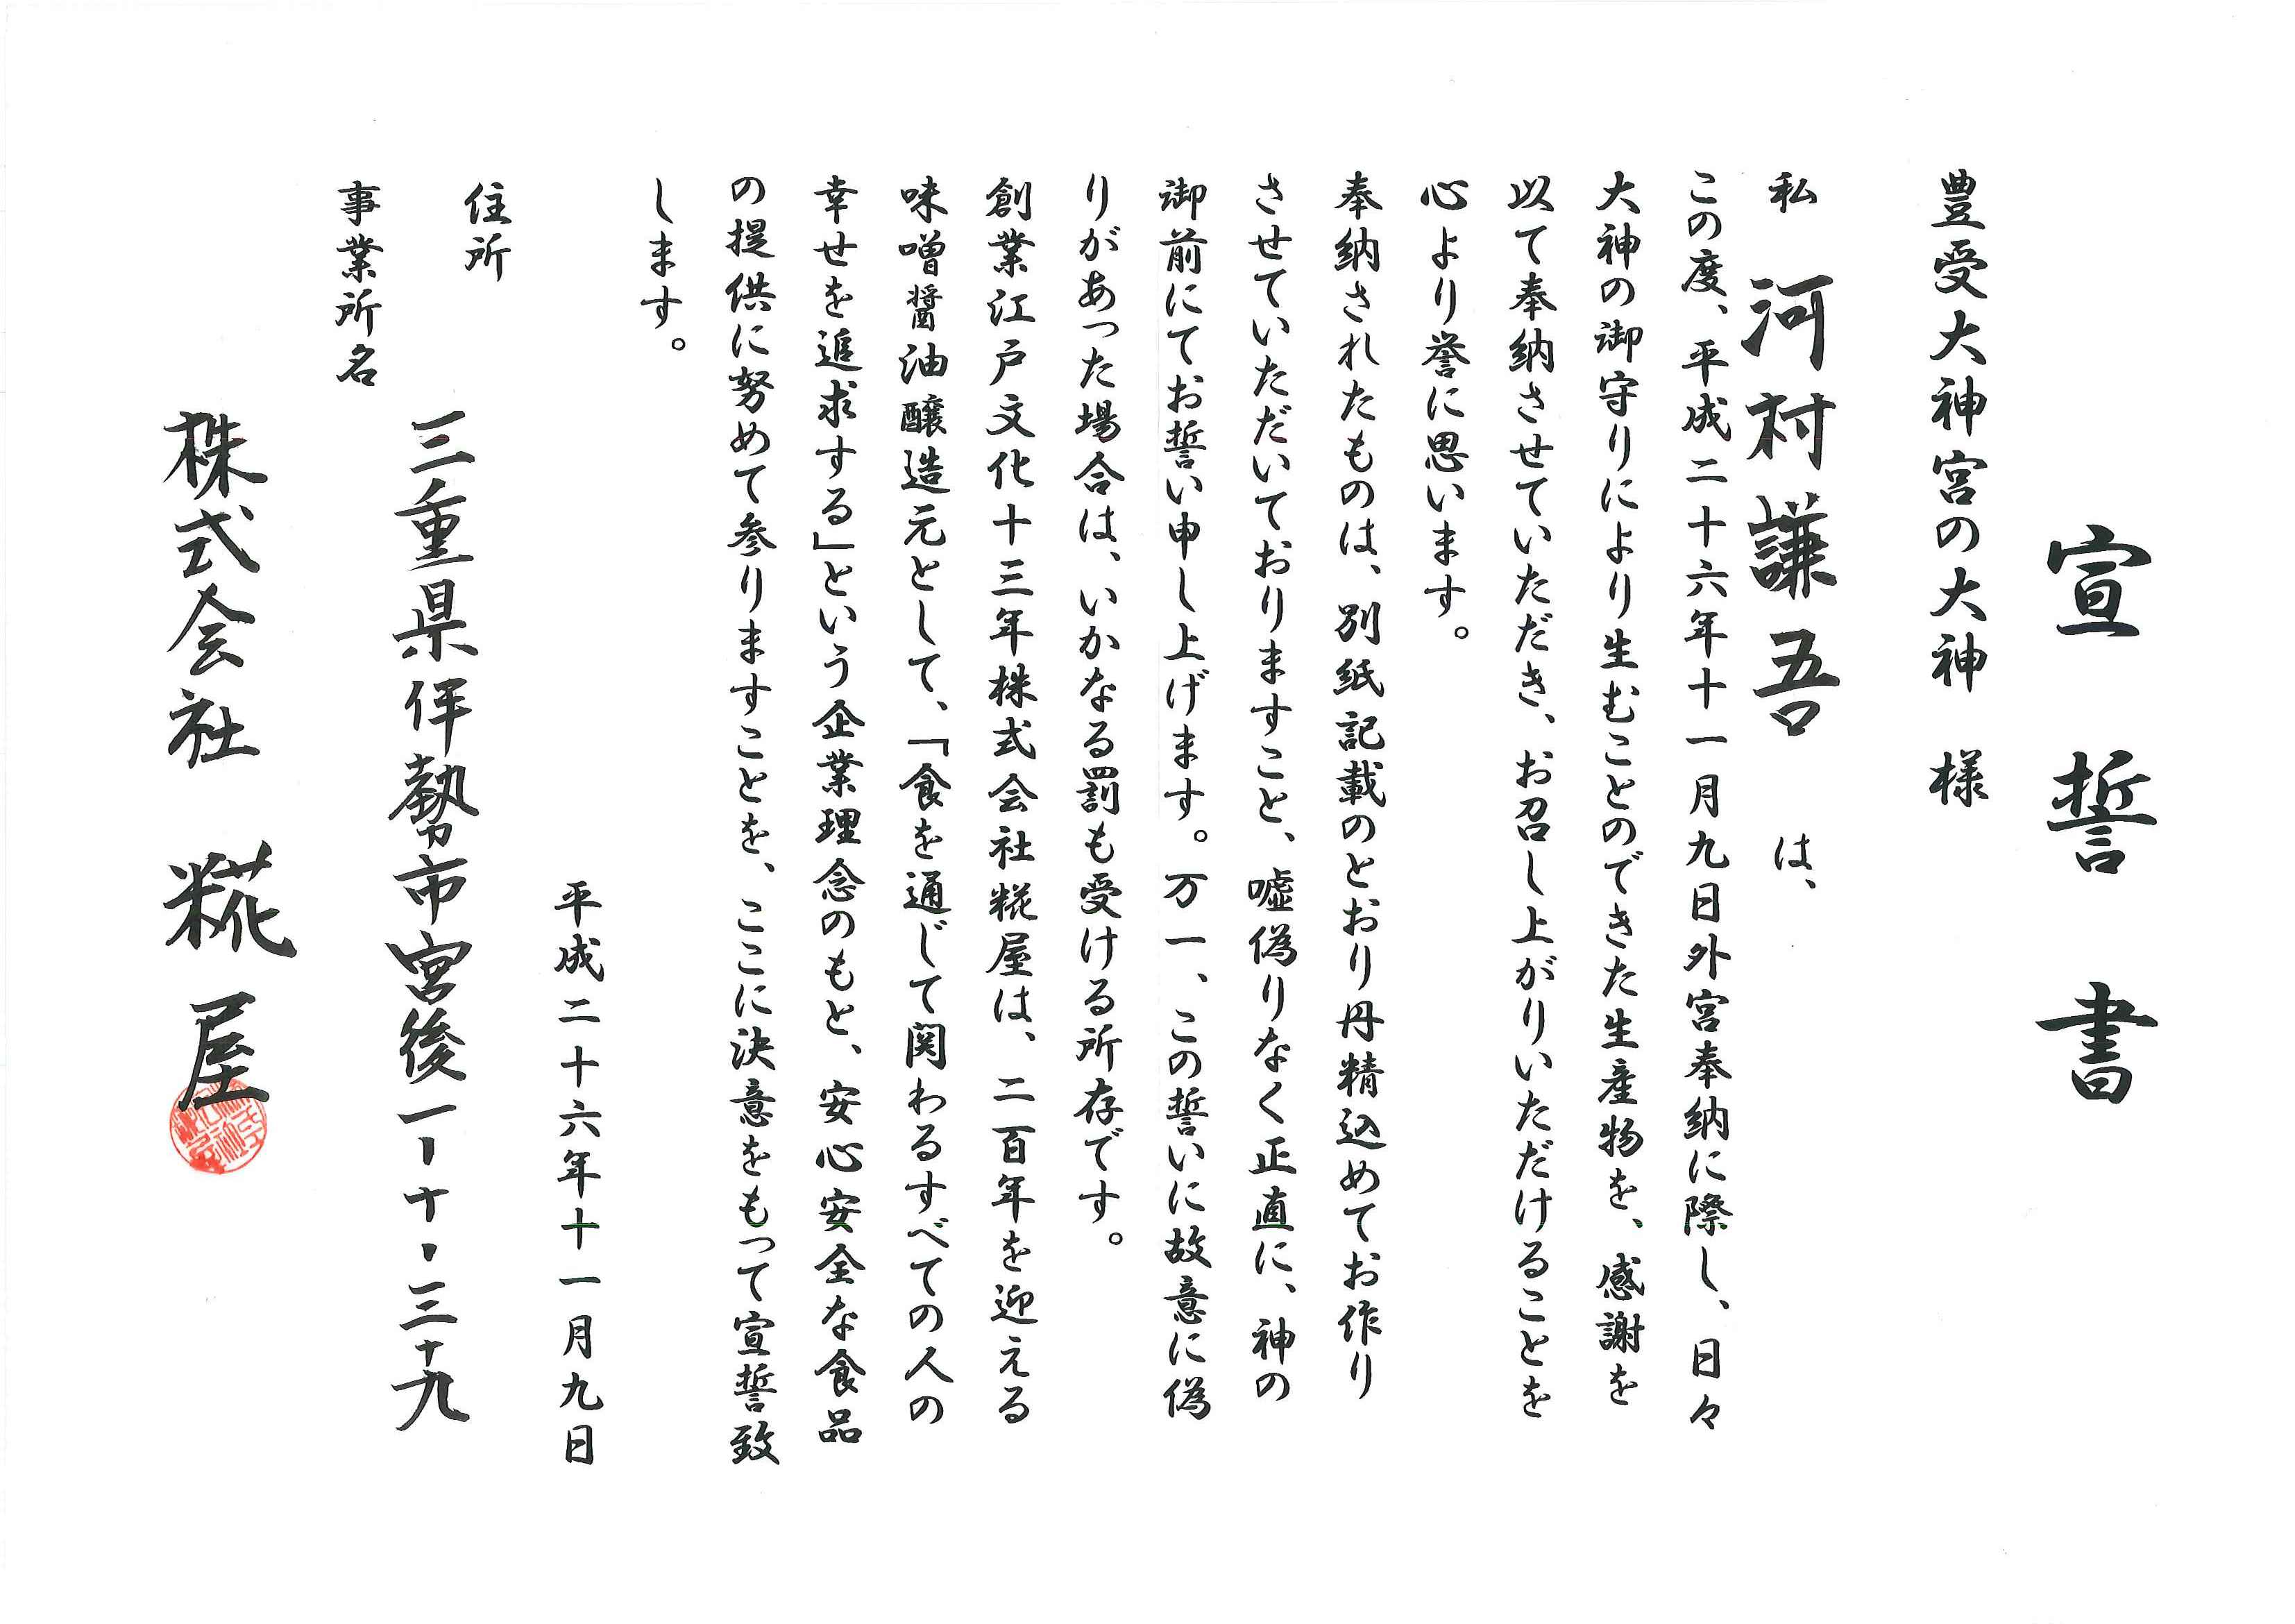 宣誓書
豊受大神宮の大神　様
私　河村謙吾　は、
この度、平成二十六年十一月九日外宮奉納に際し、日々
大神の御守りにより生むことのできた生産物を、感謝を
以て奉納させていただき、お召し上がりいただけることを
心より誉に思います。
奉納されたものは、別紙記載のとおり丹精込めてお作り
させていただいておりますこと、嘘偽りなく正直に、神の
御前にてお誓い申し上げます。万一、この誓いに故意に偽
りがあった場合は、いかなる罰も受ける所存です。
創業江戸文化十三年株式会社糀屋は、二百年を迎える
味噌醤油醸造元として、「食を通じて関わるすべての人の
幸せを追求する」という企業理念のもと、安心安全な食品
の提供に努めて参りますことを、ここに決意をもって宣誓致
します。
平成二十六年十一月九日
住所
三重県伊勢市宮後一-十-三十九
事業所名
株式会社　糀屋